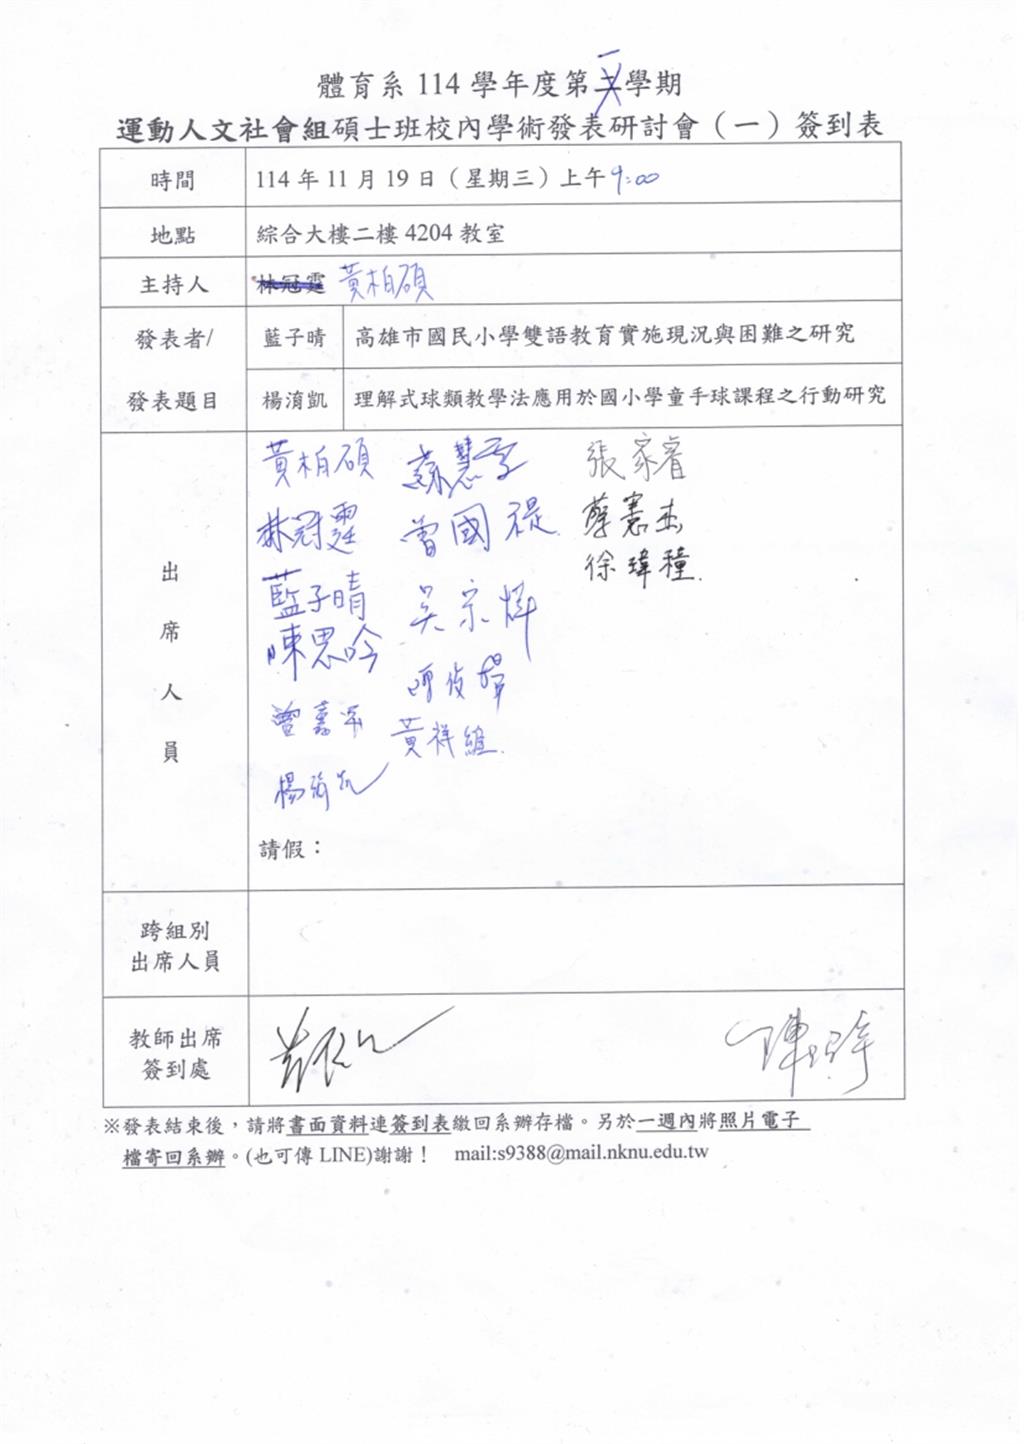 體育系 114 學年度第一學期
運動人文社會組碩士班校內學術發表研討會（一）簽到表
時間 114 年 11 月 19 日（星期三）上午 9:00
地點 綜合大樓二樓 4204 教室
主持人 林冠霆 黃柏碩
發表者/ 藍子晴 高雄市國民小學雙語教育實施現況與困難之研究
發表題目 楊淯凱 理解式球類教學法應用於國小學童手球課程之行動研究
出席人員
黃柏碩 蘇慧 張家睿
林冠霆 曾國禔 蔡憲杰
藍子晴 吳宗 徐瑋穜
陳思吟
曾嘉 黃祥
楊淯凱
請假：
跨組別
出席人員
教師出席
簽到處
※發表結束後，請將書面資料連簽到表繳回系辦存檔。另於一週內將照片電子
檔寄回系辦。(也可傳 LINE)謝謝！ mail:s9388@mail.nknu.edu.tw